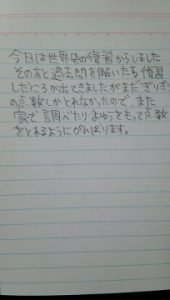 今日は世界史の復習からしました
そのあと過去問を解いたら復習
したところが出てきましたがまだぎりぎり
の点数しかとれなかったので、また
家で調べたりよゆうをもって点数
をとれるようにがんばります。